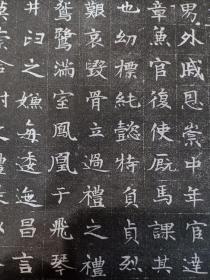 男外戚恩崇中年官達
章魚官復使厩馬課其
也幼標純懿特負貞烈
艱哀毀骨立過禮之禮
鴛鷺滿室鳳凰于飛琴
井臼之嫌每透迤昌言